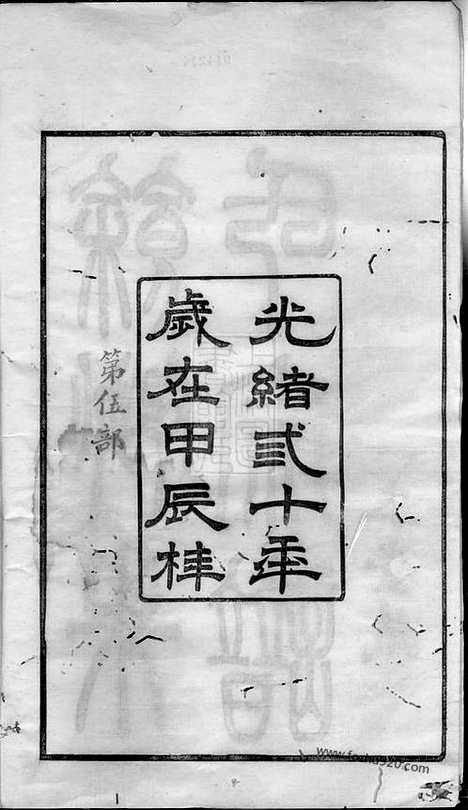 光緒弎十年
歲在甲辰桂
第伍部